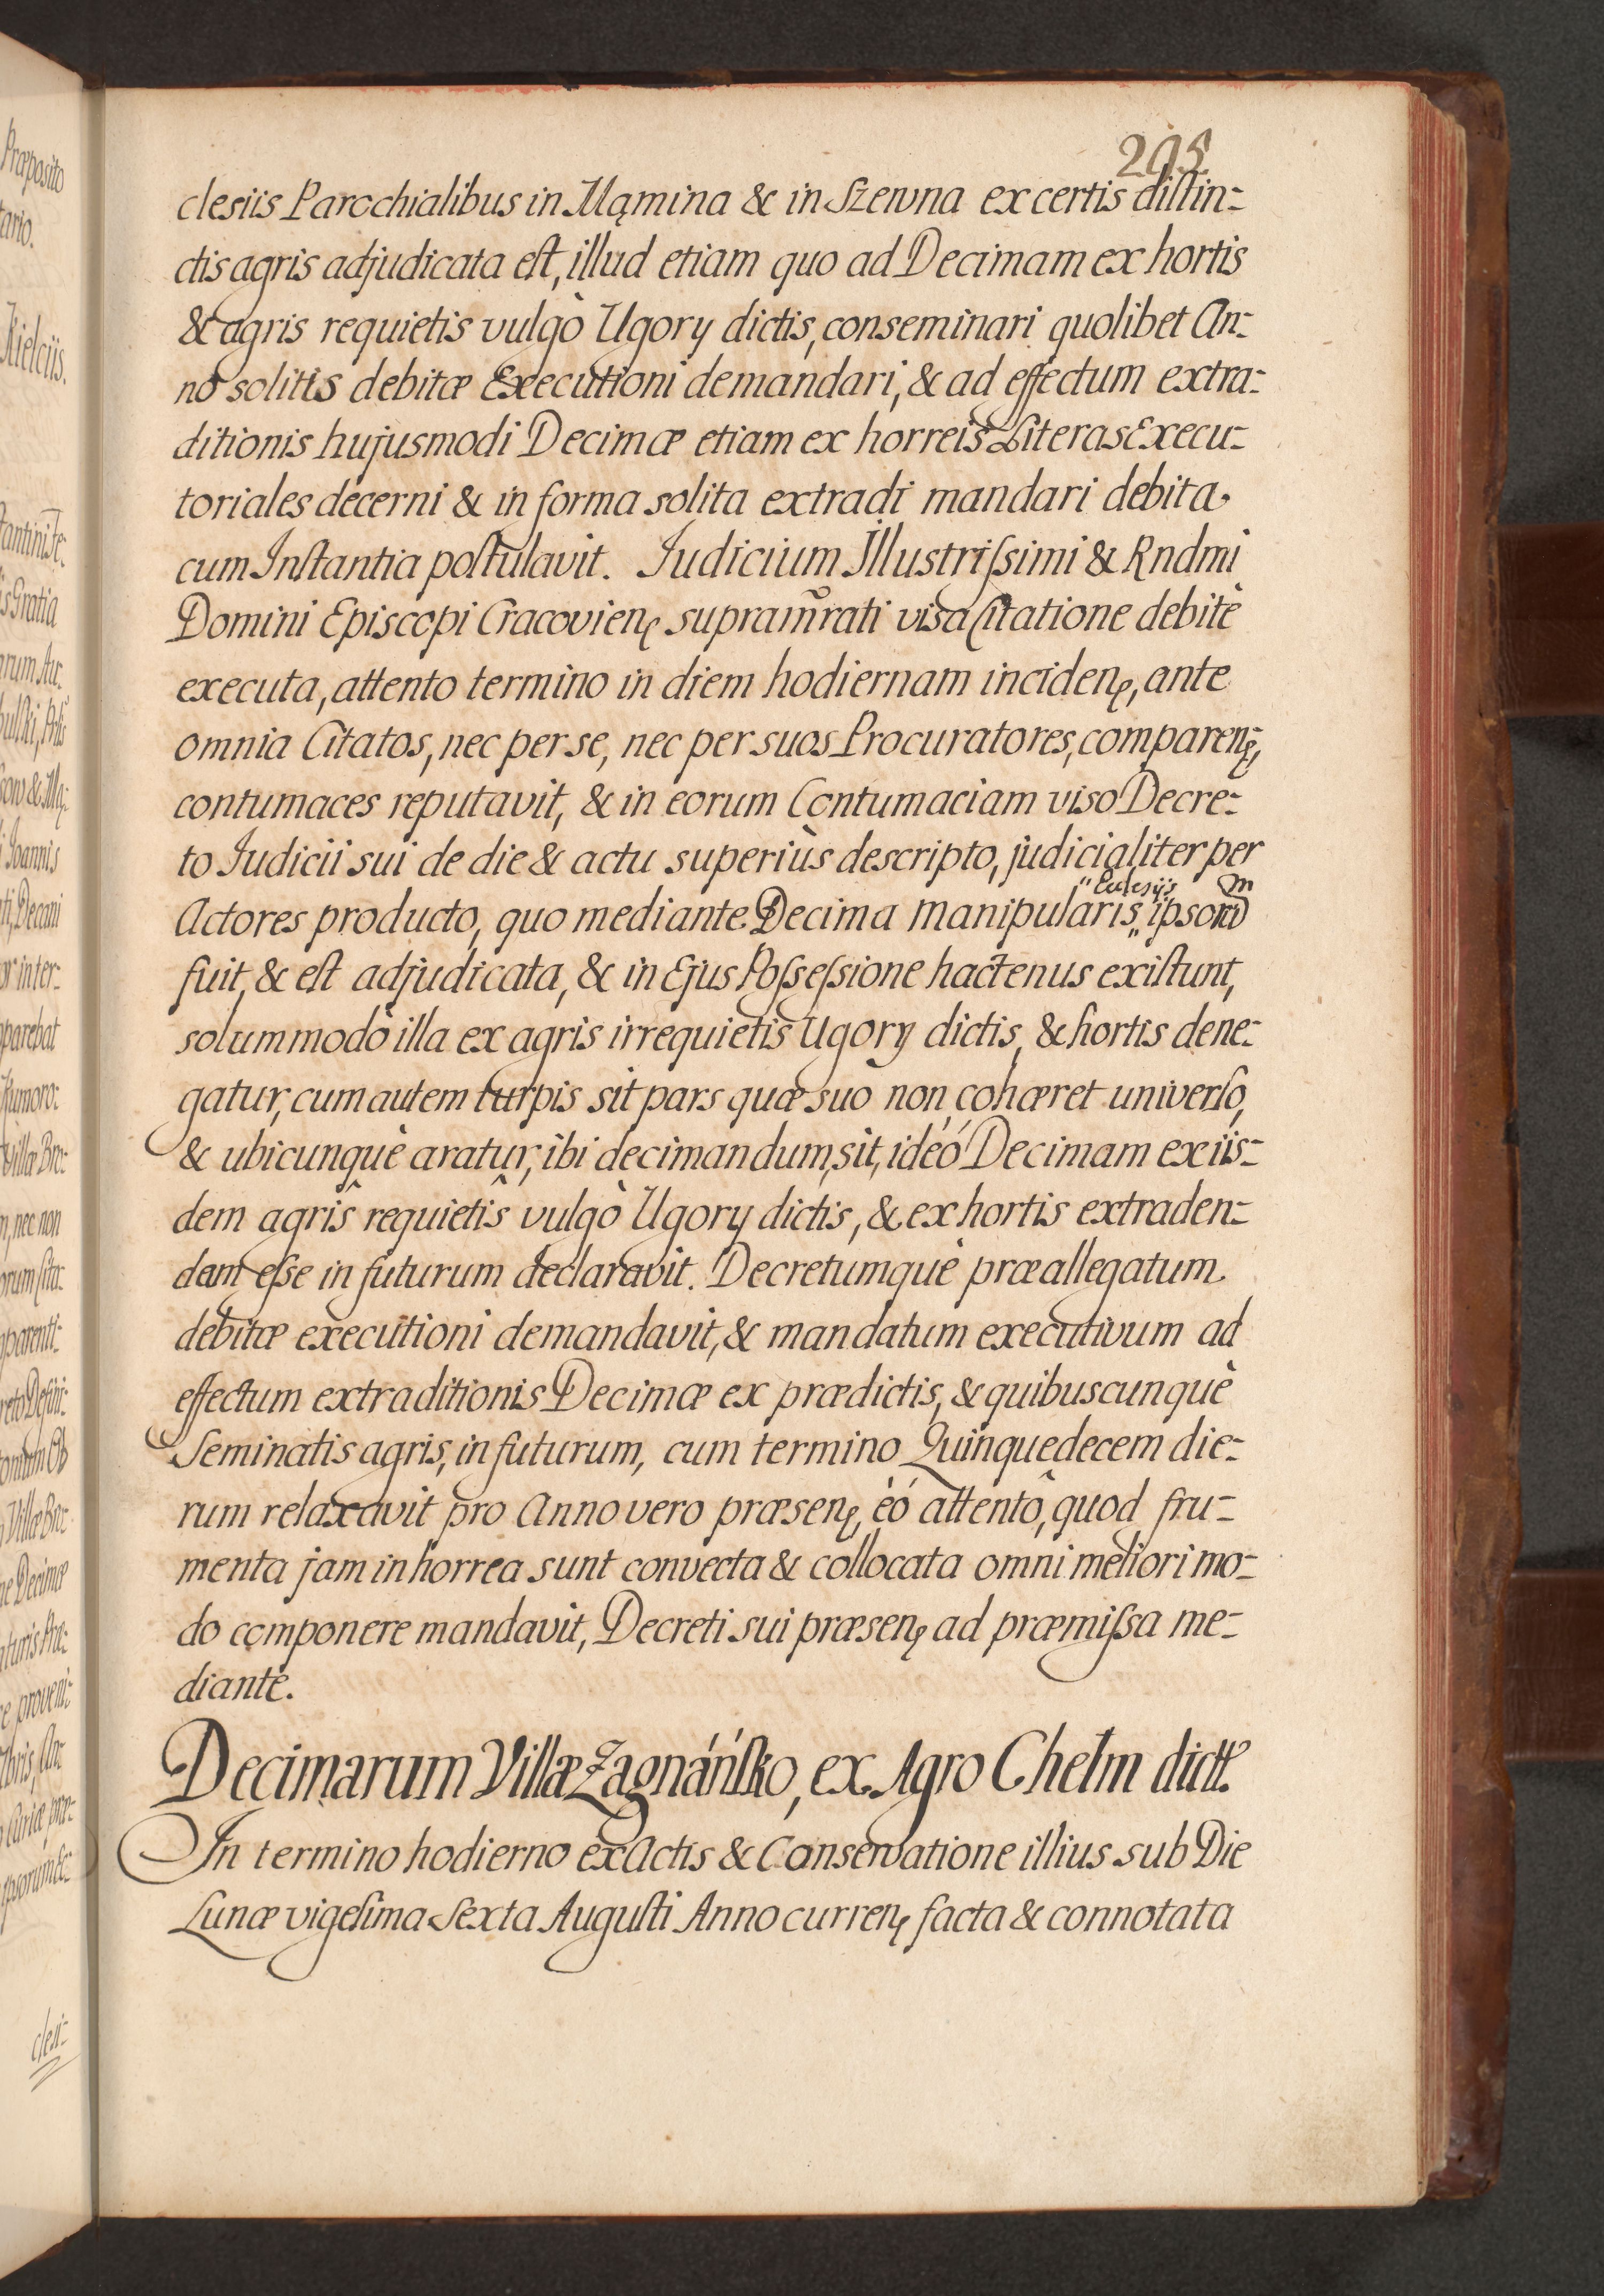 295
clesiis Parochialibus in Mąmina & in Szewna ex certis distin-
ctis agris adjudicata est, illud etiam quo ad Decimam ex hortis
& agris requietis vulgò Ugory dictis, conseminari quolibet An-
no solitis debitæ Executioni demandari, & ad effectum extra-
ditionis hujusmodi Decimæ etiam ex horreis Literas Execu-
toriales decerni & in forma solita extradi mandari debita
cum Instantia postulavit. Judicium Illustrissimi & Rndmi
Domini Episcopi Cracovienꝭ supramr̃ati visa Citatione debitè
executa, attento termino in diem hodiernam incidenꝭ, ante
omnia Citatos, nec per se, nec per suos Procuratores, comparenꝭ,
contumaces reputavit, & in eorum Contumaciam viso Decre-
to Judicii sui de die & actu superiùs descripto, judicialiter per
Actores producto, quo mediante Decima manipularis "Eclesijs" ipsorũ
fuit, & est adjudicata, & in Ejus Possessione hactenus existunt,
solummodò illa ex agris irrequietis Ugory dictis, & hortis dene-
gatur, cum autem turpis sit pars quæ suo non cohæret universo,
& ubicunquè aratur, ibi decimandum sit, ideó Decimam ex iis-
dem agris requietis vulgò Ugory dictis, & ex hortis extraden-
dam esse in futurum declaravit. Decretumquè præallegatum
debitæ executioni demandavit, & mandatum executivum ad
effectum extraditionis Decimæ ex prædictis, & quibuscunquè
Seminatis agris, in futurum, cum termino Quinquedecem die-
rum relaxavit pro Anno vero præsenꝭ, eó attentô, quod fru-
menta jam in horrea sunt convecta & collocata omni meliori mo-
do componere mandavit, Decreti sui præsenꝭ ad præmissa me-
diante.
Decimarum Villæ Zagnáńsko, ex Agro Chełm dictt.
In termino hodierno ex Actis & Conservatione illius sub Die
Lunæ vigesima Sexta Augusti Anno currenꝭ facta & connotata